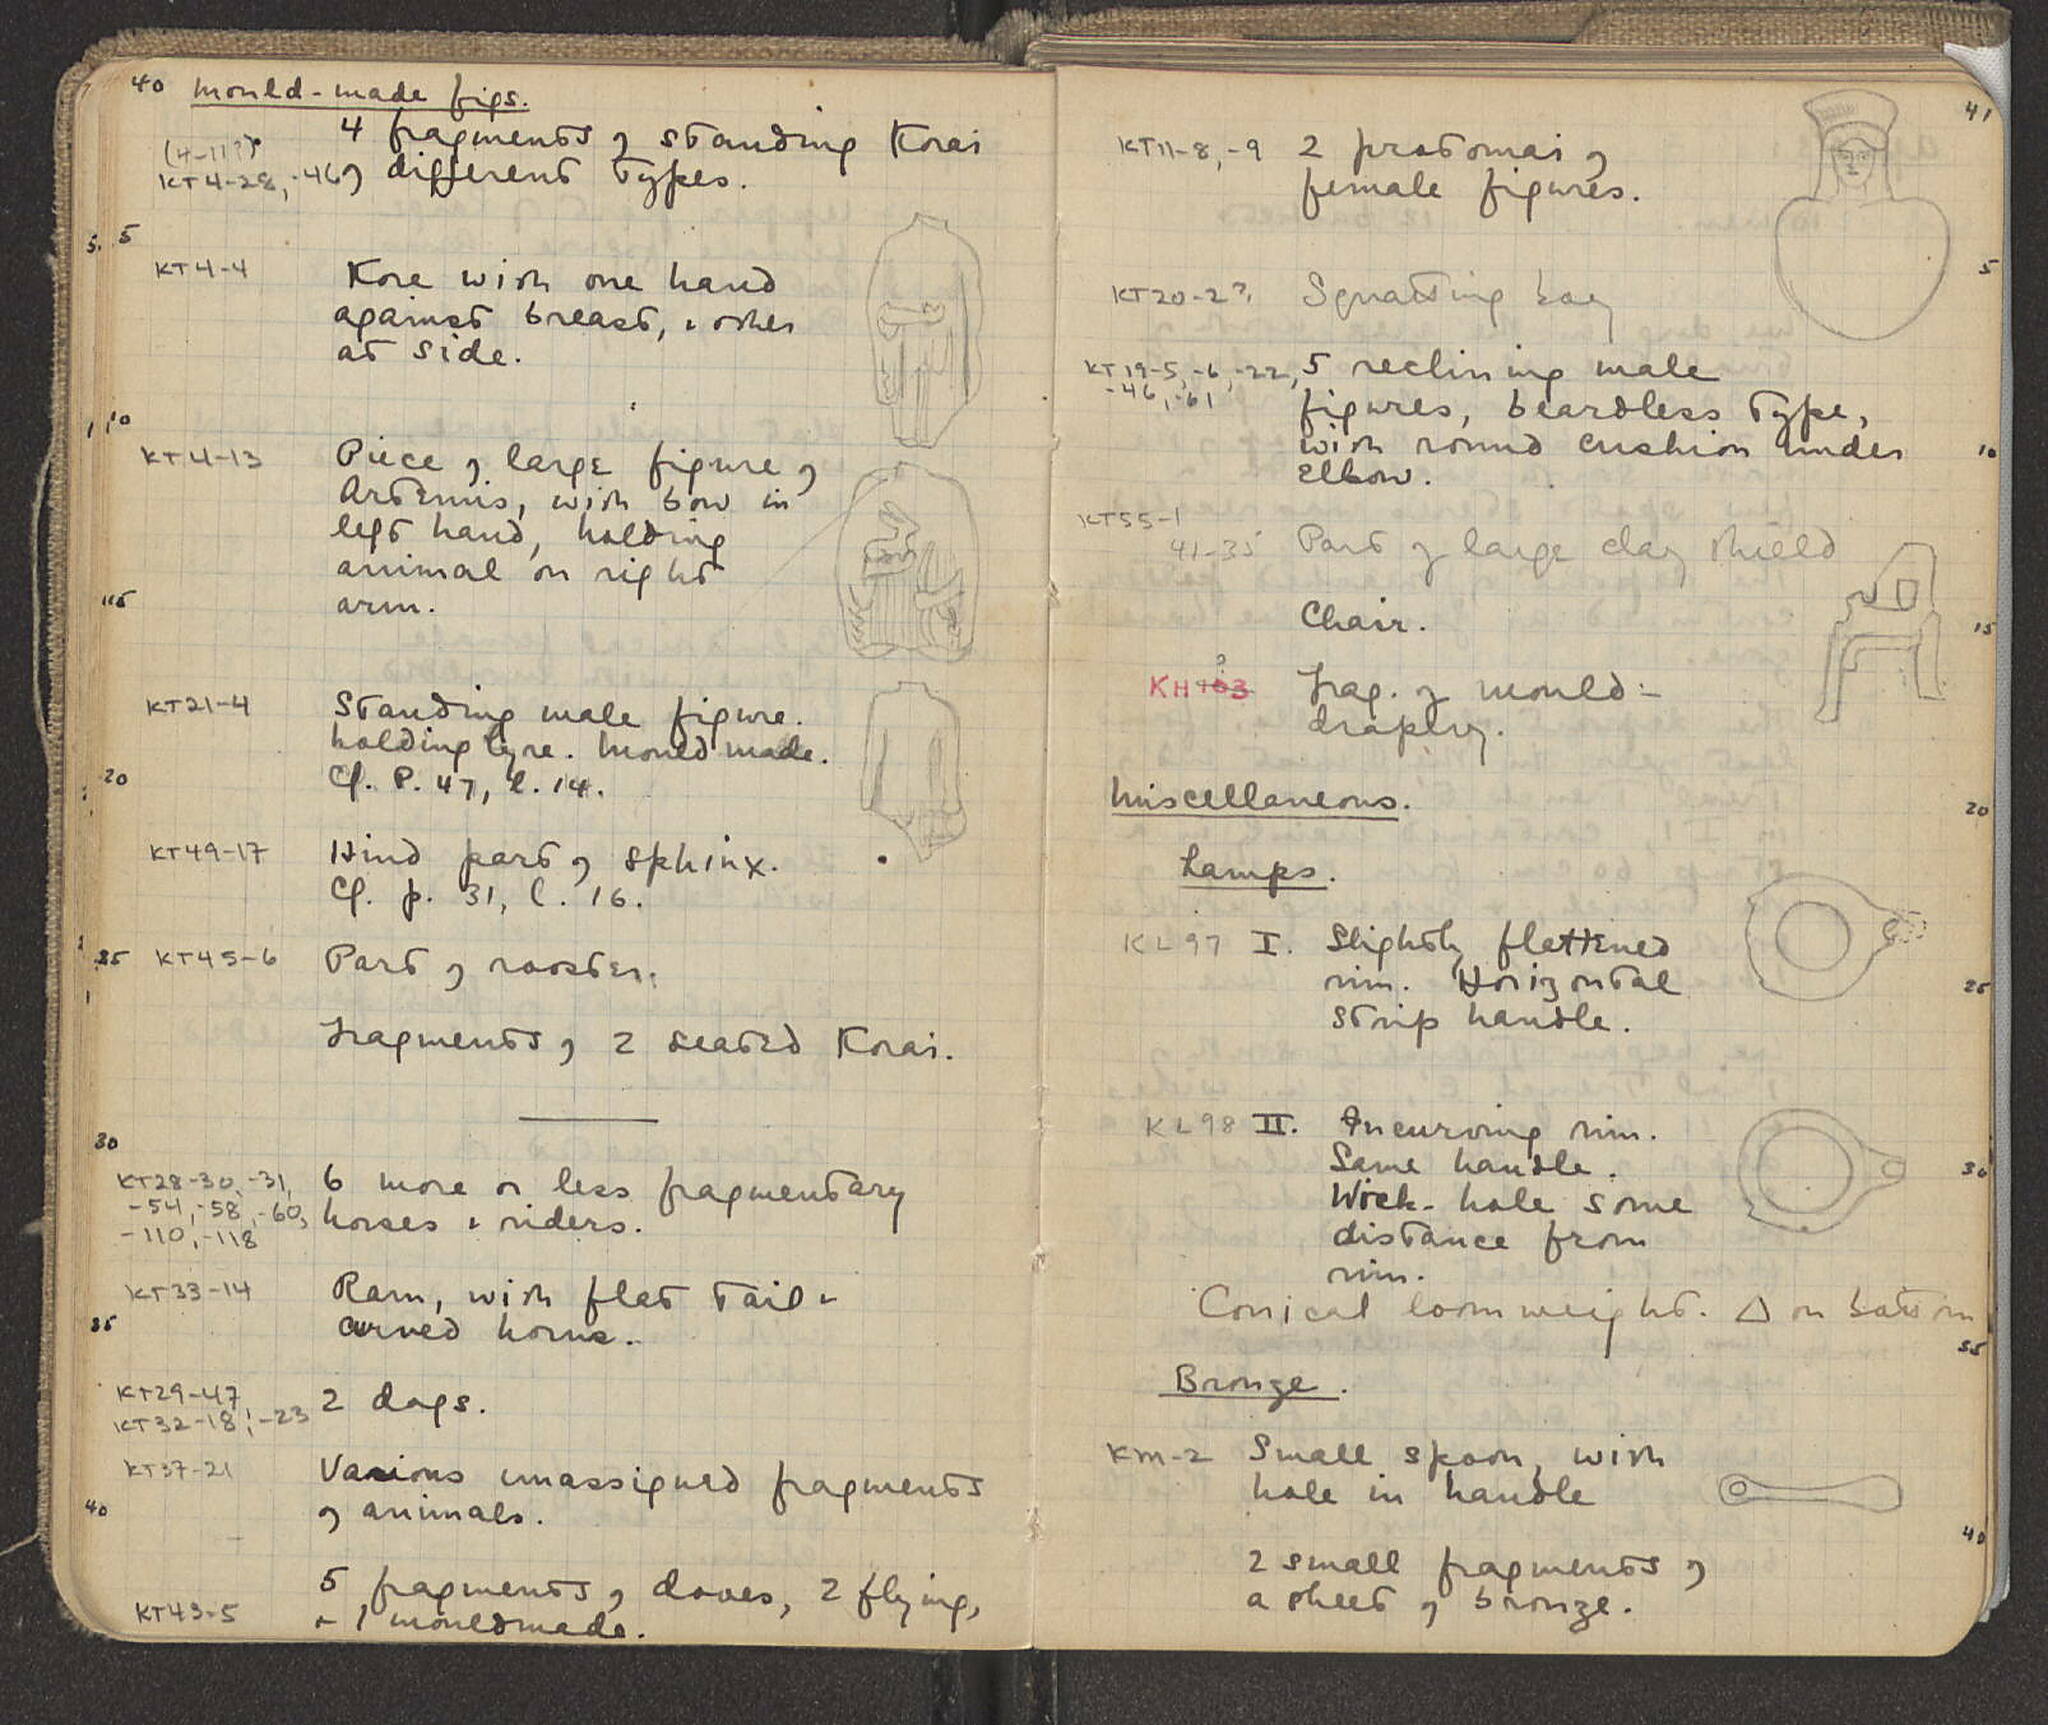 40 Mould-made figs.
4 fragments of standing Korai
(4-11?)
KT4-28, -46 of different types.
5
KT4-4 Kore with one hand
against breast, & other
at side.
10
KT4-13 Piece of large figure of
Artemis, with bow in
left hand, holding
animal on right
15 arm.
KT21-4 Standing male figure.
holding lyre. Mould made.
20 Cf. P. 47, l. 14.
KT49-17 Hind part of sphinx.
Cf. p. 31, l. 16.
25 KT45-6 Part of rooster.
Fragments of 2 seated Korai.
30
KT28-30, -31, 6 more or less fragmentary
-54, -58, -60, horses & riders.
-110, -118
KT33-14 Ram, with flat tail &
35 curved horns.
KT29-47 2 dogs.
KT32-18, -23
KT37-21 Various unassigned fragments
40 of animals.
5 fragments of doves, 2 flying,
KT43-5 + 1 mouldmade.
41
KT11-8, -9 2 protomai of
female figures.
5
KT20-2? Squatting boy
KT19-5, -6, -22, 5 reclining male
-46, -61 figures, beardless type,
with round cushion under 10
elbow.
KT55-1
41-35 Part of large clay shield
Chair. 15
KH 103 ? Frag. of mould-
drapery.
Miscellaneous.
20
Lamps.
KL97 I. Slightly flattened
rim. Horizontal 25
strip handle.
KL98 II. Incurving rim.
Same handle. 30
Wick-hole some
distance from
rim.
Conical loomweight. Δ on bottom
35
Bronze.
KM-2 Small spoon, with
hole in handle
40
2 small fragments of
a sheet of bronze.